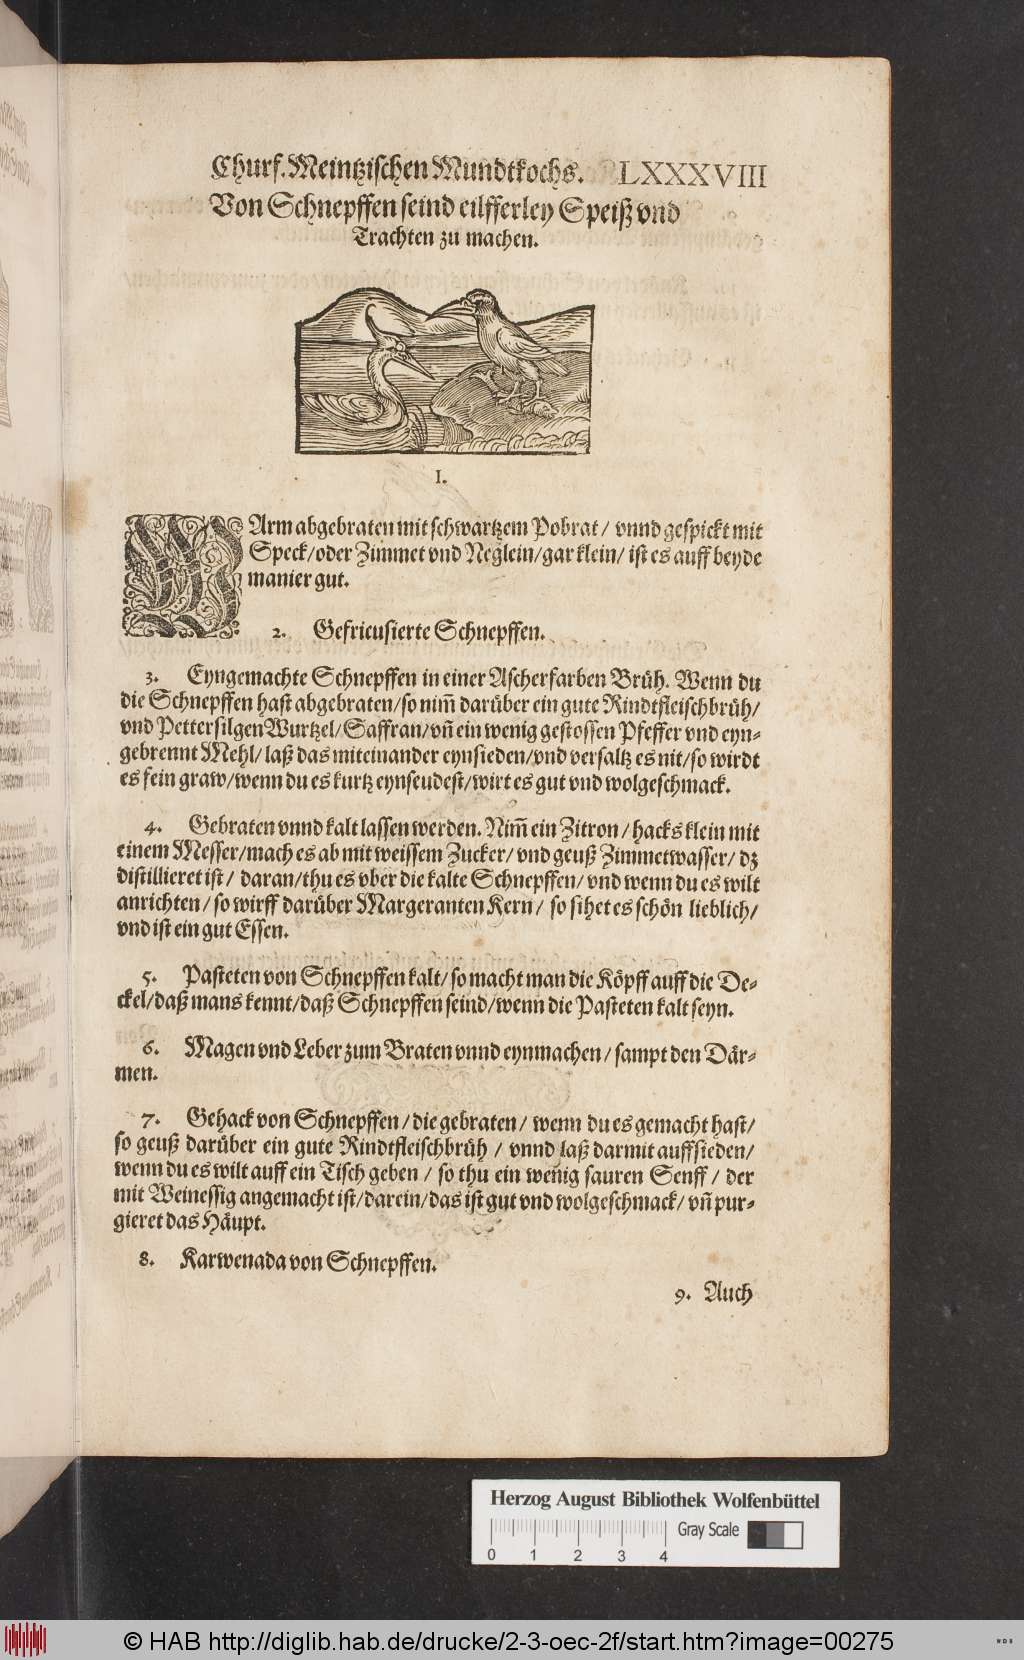 Churf. Meintzischen Mundtkochs. LXXXVIII
Von Schnepffen seind eilfferley Speiß vnd
Trachten zu machen.
I.
WArm abgebraten mit schwartzem Pobrat / vnnd gespickt mit
Speck / oder Zimmet vnd Neglein / gar klein / ist es auff beyde
manier gut.
2. Gefricusierte Schnepffen.
3. Eyngemachte Schnepffen in einer Ascherfarben Brüh. Wenn du
die Schnepffen hast abgebraten / so nim̃ darüber ein gute Rindtfleischbrüh /
vnd Pettersilgen Wurtzel / Saffran / vñ ein wenig gestossen Pfeffer vnd eyn-
gebrennt Mehl / laß das miteinander eynsieden / vnd versaltz es nit / so wirdt
es fein graw / wenn du es kurtz eynseudest / wirt es gut vnd wolgeschmack.
4. Gebraten vnnd kalt lassen werden. Nim̃ ein Zitron / hacks klein mit
einem Messer / mach es ab mit weissem Zucker / vnd geuß Zimmetwasser / dz
distillieret ist / daran / thu es vber die kalte Schnepffen / vnd wenn du es wilt
anrichten / so wirff darüber Margeranten Kern / so sihet es schön lieblich /
vnd ist ein gut Essen.
5. Pasteten von Schnepffen kalt / so macht man die Köpff auff die De-
ckel / daß mans kennt / daß Schnepffen seind / wenn die Pasteten kalt seyn.
6. Magen vnd Leber zum Braten vnnd eynmachen / sampt den Där-
men.
7. Gehack von Schnepffen / die gebraten / wenn du es gemacht hast /
so geuß darüber ein gute Rindtfleischbrüh / vnnd laß darmit auffsieden /
wenn du es wilt auff ein Tisch geben / so thu ein wenig sauren Senff / der
mit Weinessig angemacht ist / darein / das ist gut vnd wolgeschmack / vñ pur-
gieret das Häupt.
8. Karwenada von Schnepffen.
9. Auch
Herzog August Bibliothek Wolfenbüttel
Gray Scale
0 1 2 3 4
© HAB http://diglib.hab.de/drucke/2-3-oec-2f/start.htm?image=00275